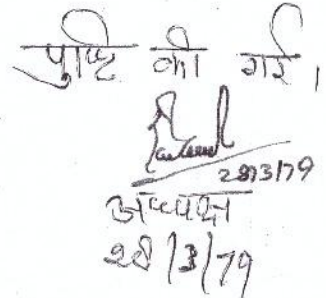 पुष्टि की गई।
28/3/79
अध्यक्ष
28/3/79